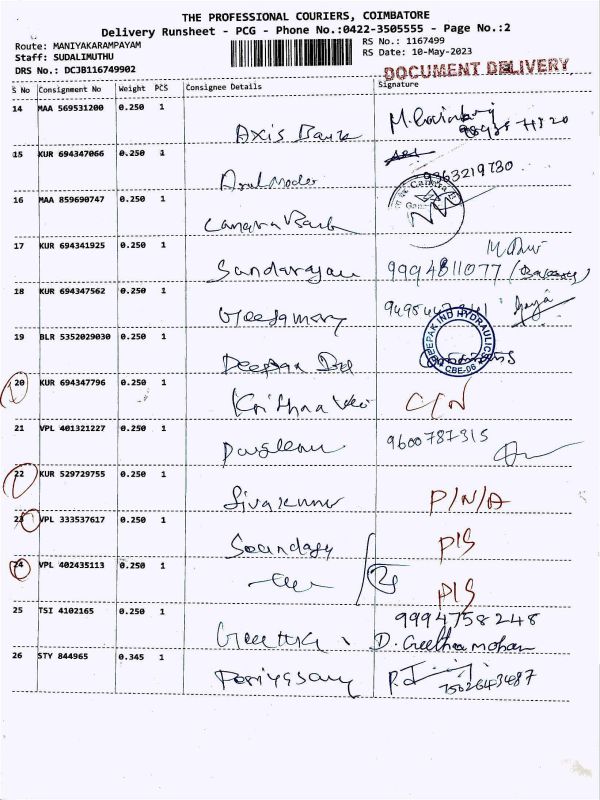 THE PROFESSIONAL COURIERS, COIMBATORE
Delivery Runsheet - PCG - Phone No.:0422-3505555 - Page No.:2
Route: MANIYAKARAMPAYAM
RS No.: 1167499
Staff: SUDALIMUTHU
RS Date: 10-May-2023
DRS No.: DCJB116749902
DOCUMENT DELIVERY
S No Consignment No Weight PCS Consignee Details Signature
14 MAA 569531200 0.250 1
Axis Bank
15 KUR 694347066 0.250 1
9363219730
16 MAA 859690747 0.250 1
Canara Bank
17 KUR 694341925 0.250 1
Sundarajan 9994811077
18 KUR 694347562 0.250 1
Geethamony
19 BLR 5352029030 0.250 1
DEEPAK IND HYDRAULICS
CBE-06
20 KUR 694347796 0.250 1
C/N
21 VPL 401321227 0.250 1
9600787315
22 KUR 529729755 0.250 1
Sivakumar P/N/A
23 VPL 333537617 0.250 1
Soundary P/S
24 VPL 402435113 0.250 1
P/S
25 TSI 4102165 0.250 1
9994758248
Geetha D. Geethamohan
26 STY 844965 0.345 1
Periyasamy